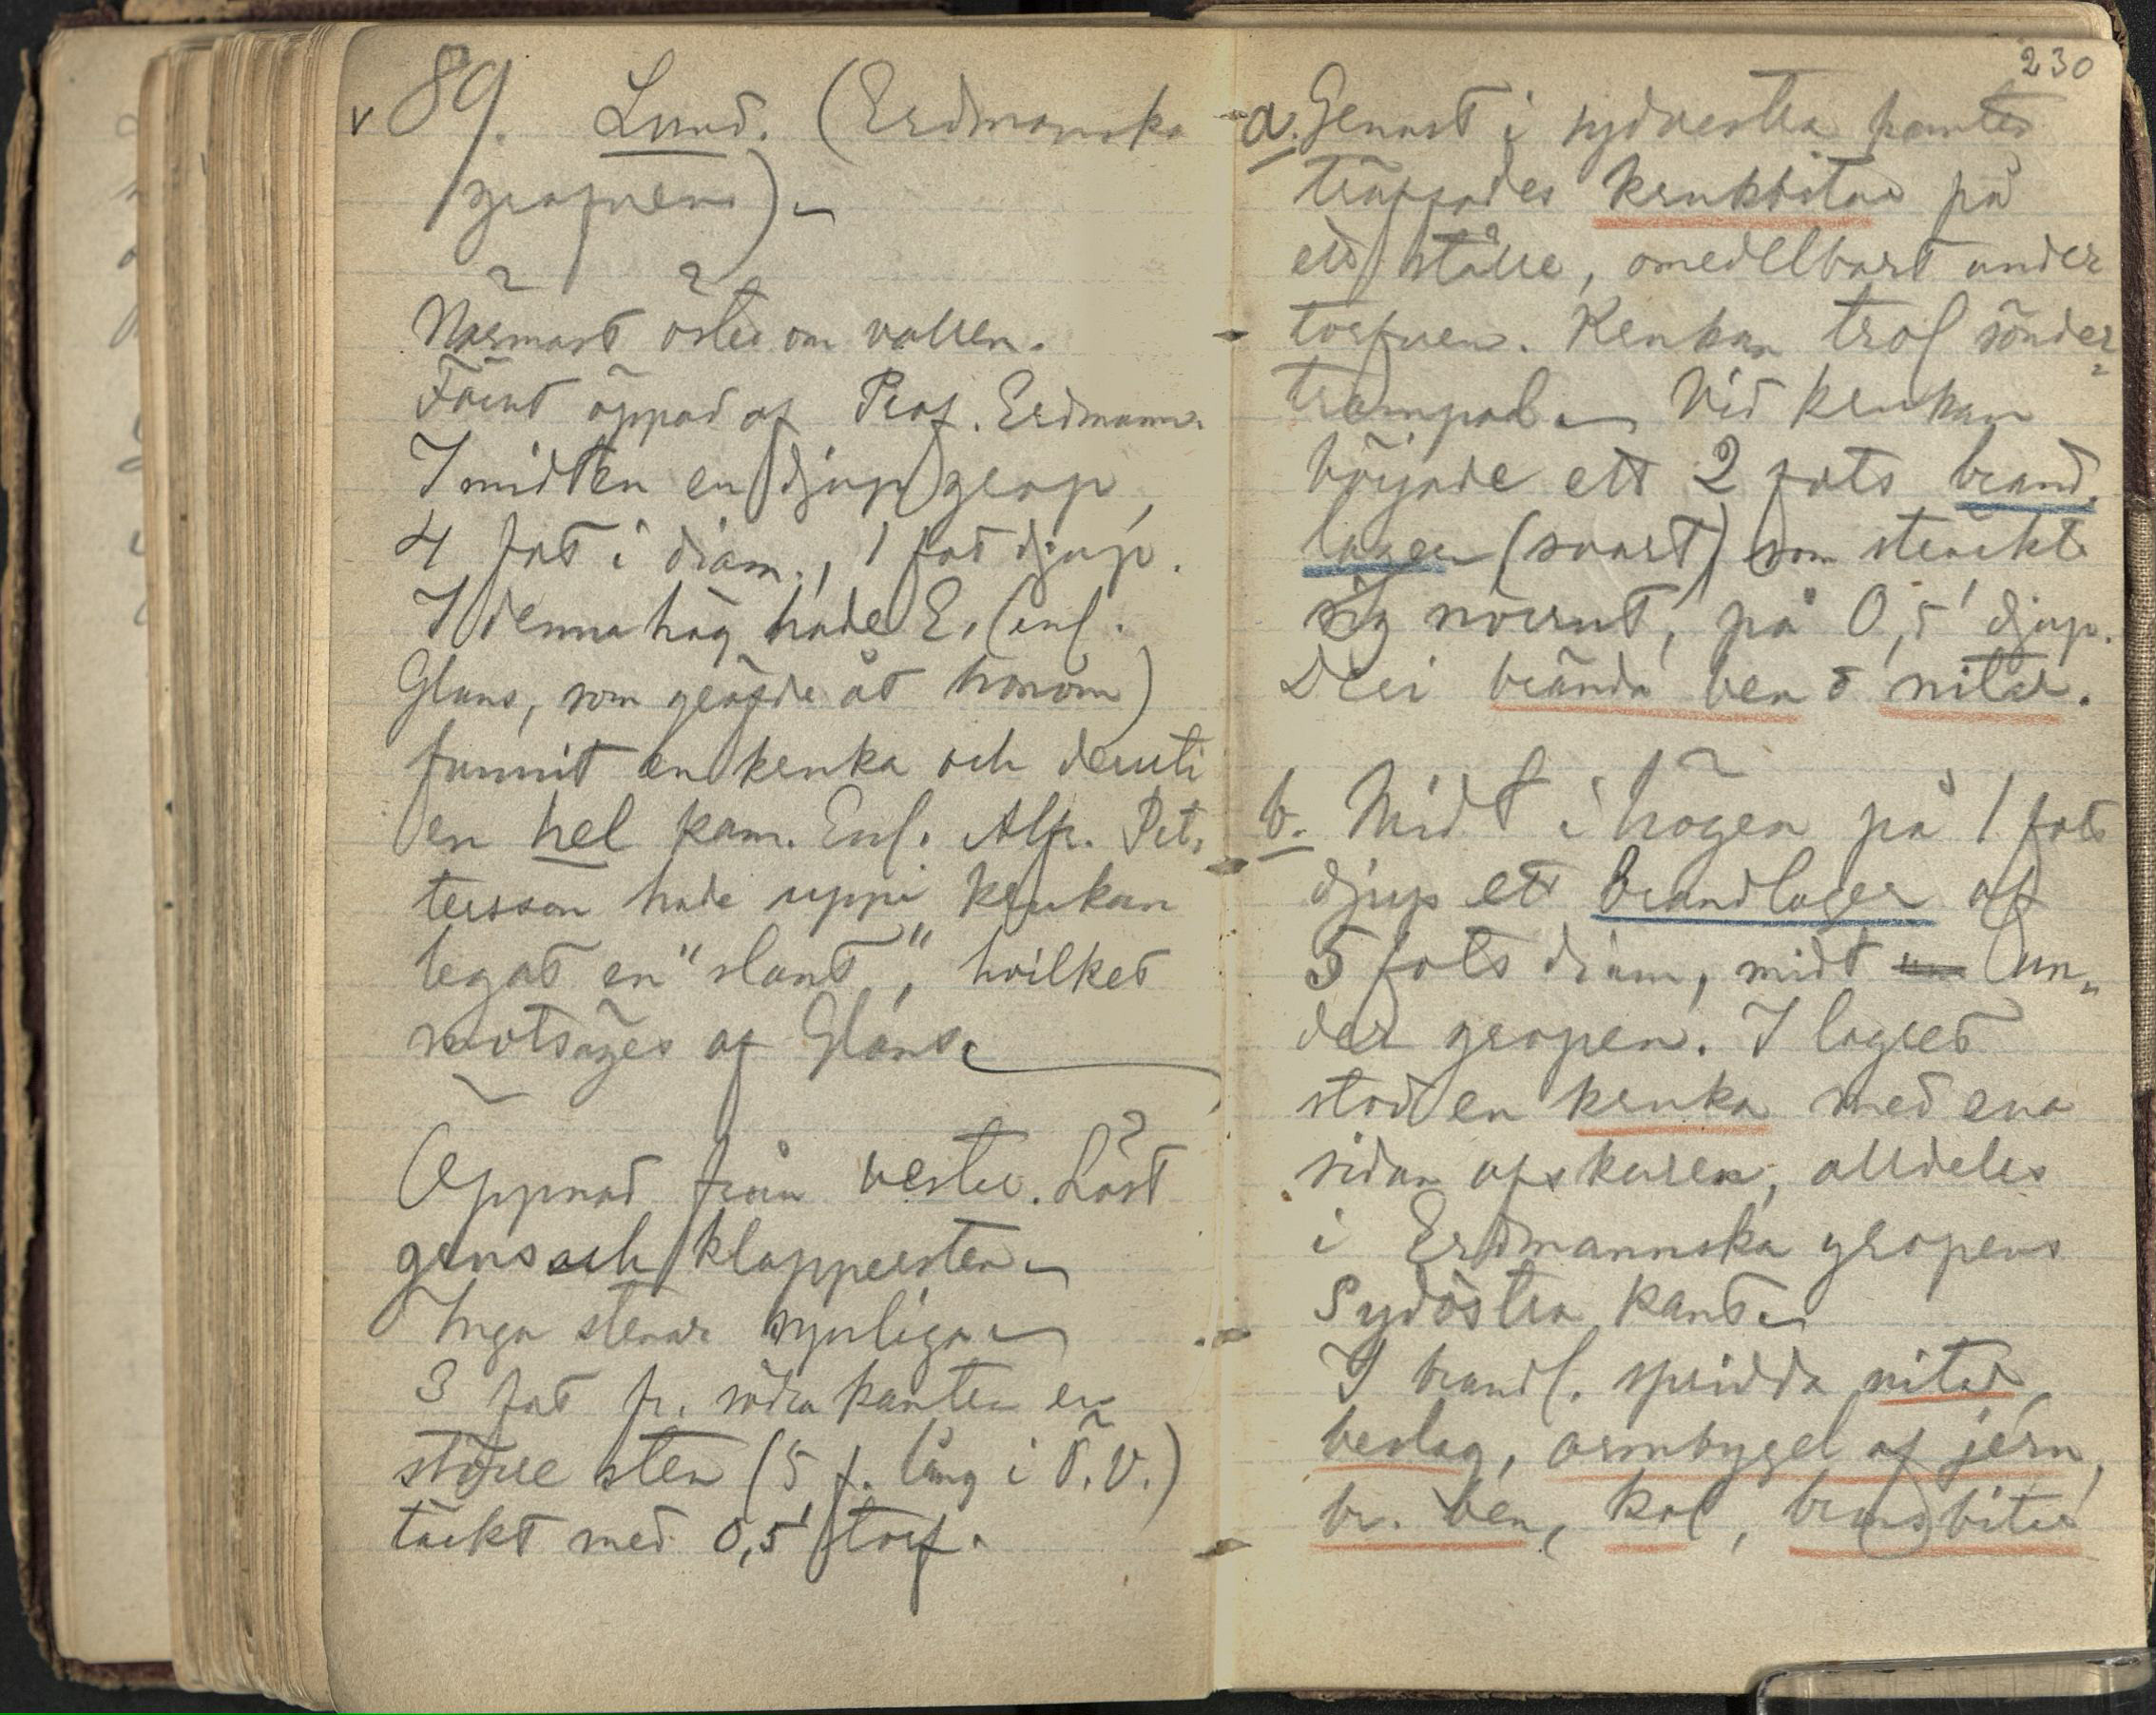 v 89. Lund. (Erdmanska
gropen).
Närmast öster om vallen.
Förut öppad af Prof. Erdmann.
I midten en djup grop,
4 fot i diam., 1 fot djup.
I denna hög hade E. (enl.
Glans, som gräfde åt honom)
funnit en kruka och deruti
en hel kam. Enl. Alfr. Pet,
tersson hade uppi krukan
legat en "slant", hvilket
motsäges af Glans.
Öppnad från vester. Löst
grus och klappersten
Inga stenar synliga
3 fot fr. södra kanten en
större sten (5 f. lång i Ö.V.)
täckt med 0,5' torf.
230
a. Genast i sydvestra kanten
träffades krukbitar på
ett ställe, omedelbart under
torfven. Krukan trol sönder=
trampad. Vid krukan
började ett 2 fots brand,
lager (svart) som sträckte
sig norrut, på 0,5' djup.
Deri brända ben o nitar.
b. Midt i högen på 1 fots
djup ett brandlager af
5 fots diam, midt un un„
der gropen. I lagret
stod en kruka med ena
sidan afskuren, alldeles
i Erdmannska gropens
Sydöstra kant.
I brandl. spridda nitar,
beslag, armbygel af jern,
br. ben, kol, bronsbitar